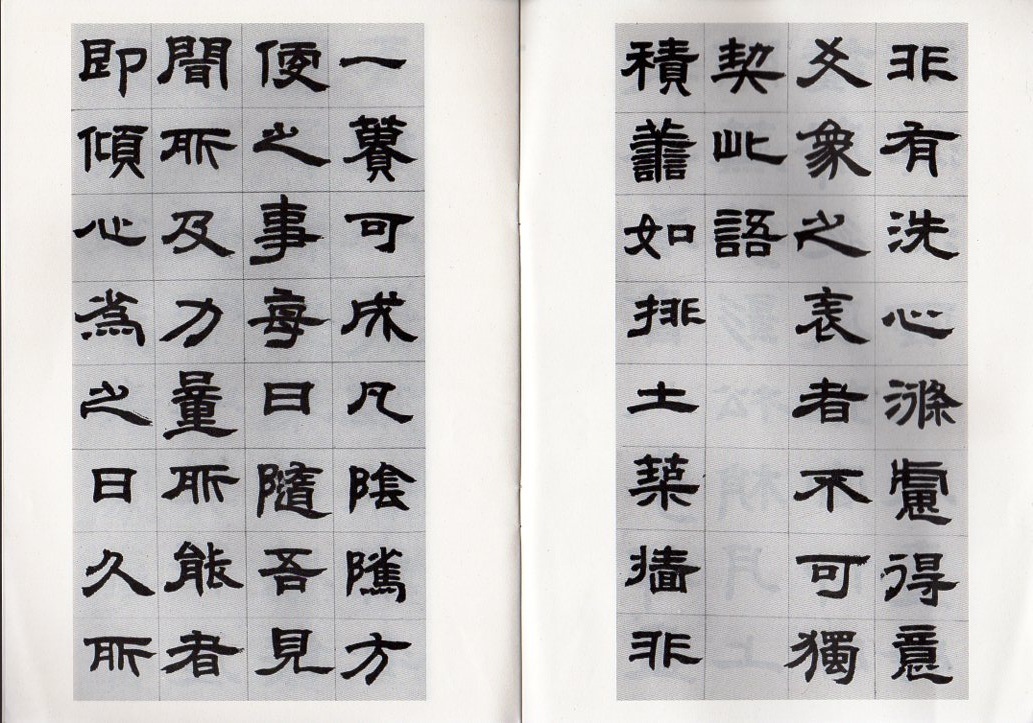 非有洗心滌慮得意
爻象之表者不可獨
契此語
積譱如排土築牆非
一簣可成凡陰騭方
便之事每日隨吾見
聞所及力量所能者
即傾心為之日久所